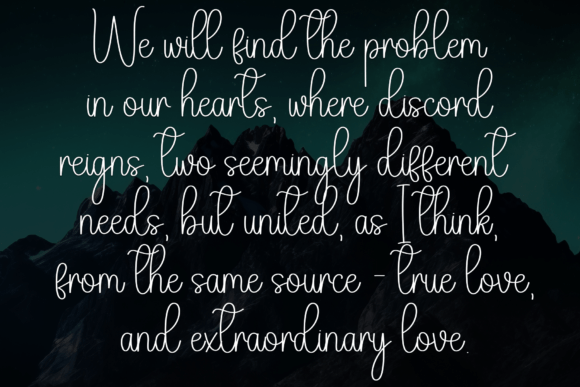 We will find the problem
in our hearts, where discord
reigns, two seemingly different
needs, but united, as I think,
from the same source - true love,
and extraordinary love.